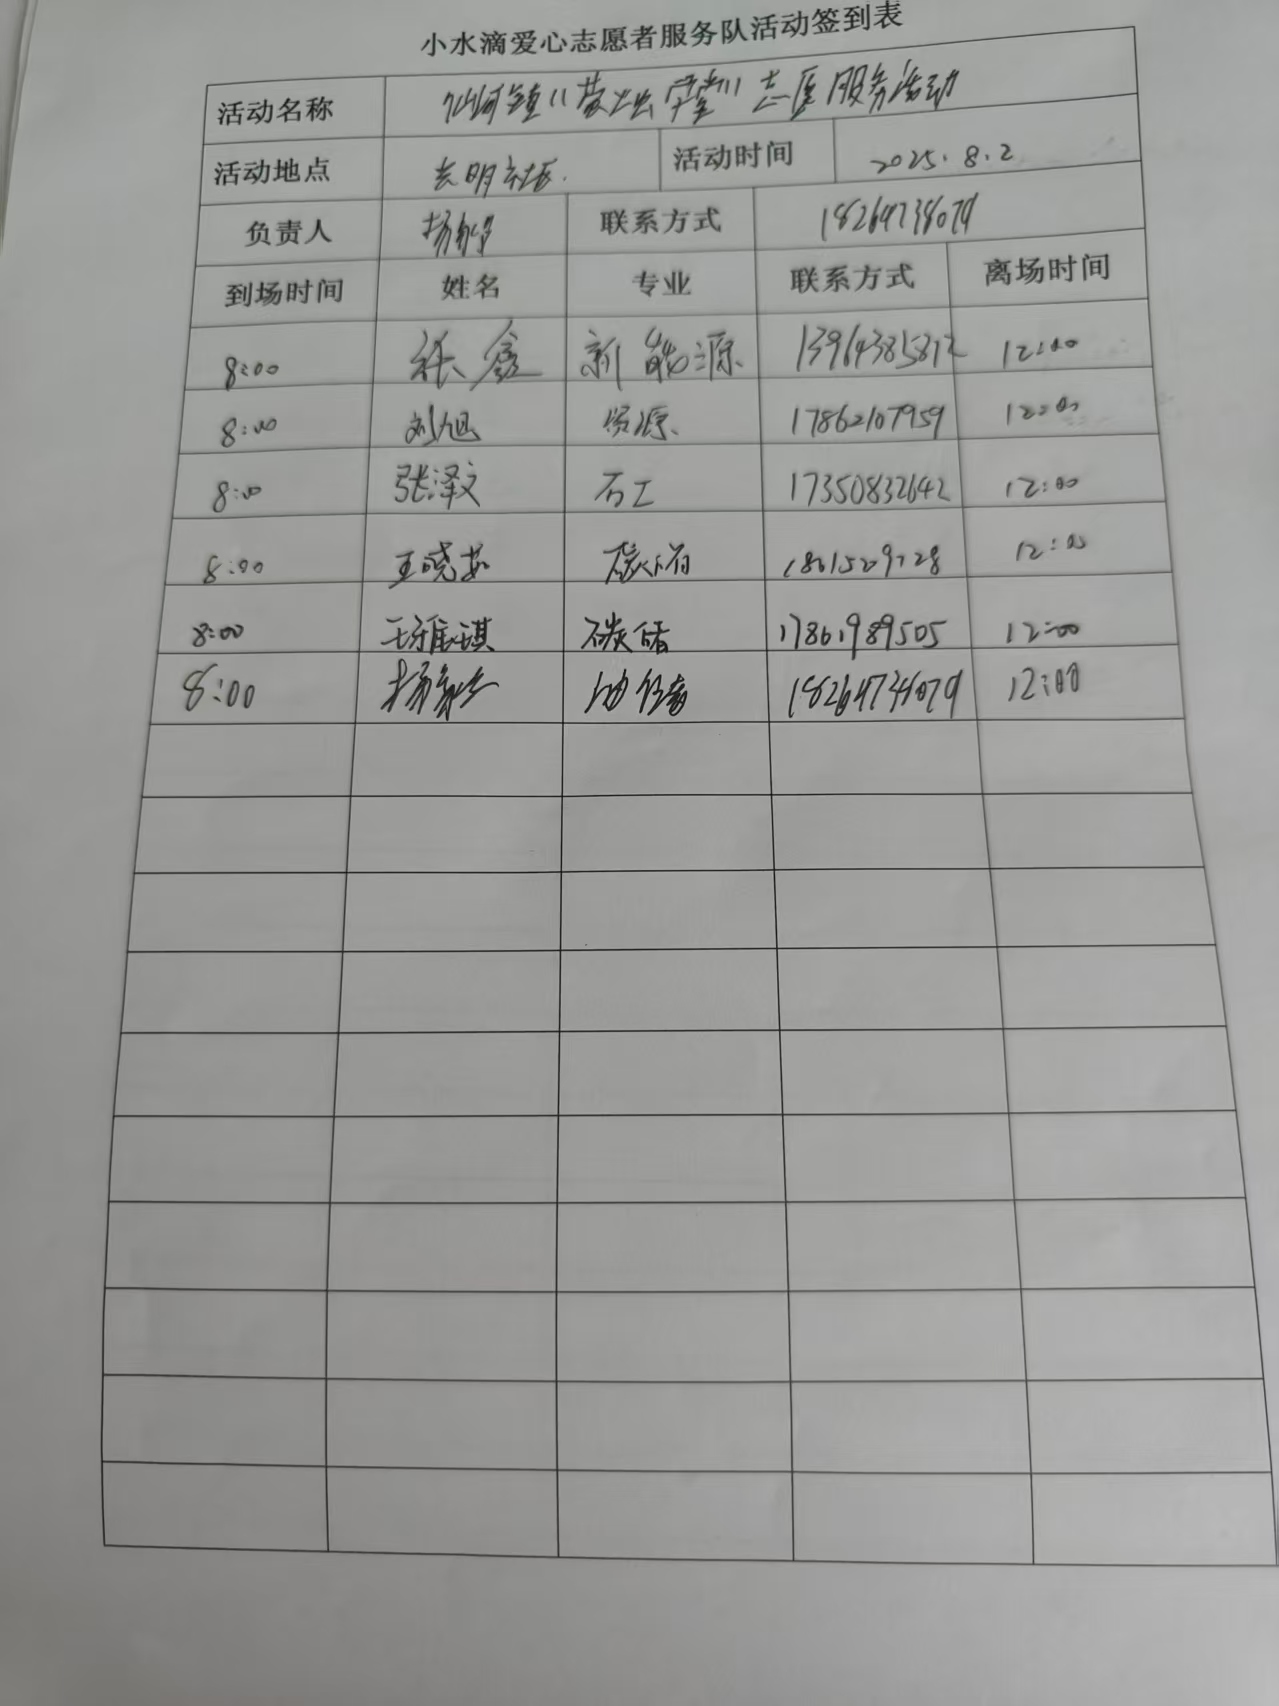 小水滴爱心志愿者服务队活动签到表
活动名称 仙河镇“ 学堂”志愿服务活动
活动地点 社区. 活动时间 2025.8.2
负责人 杨 联系方式 18264738079
到场时间 姓名 专业 联系方式 离场时间
8:00 张鑫 新能源 13964385812 12:00
8:00 刘旭 资源 17862107959 12:00
8:00 张泽文 石工 17350832642 12:00
8:00 王晓 碳储 12:00
8:00 王雅琪 碳储 17861989505 12:00
8:00 杨 油储 18264738079 12:00